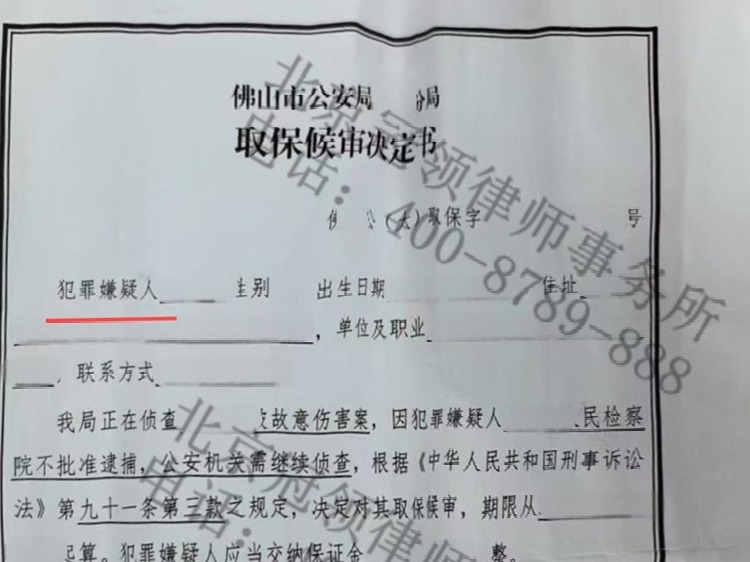 佛山市公安局 分局
取保候审决定书
公(大)取保字 号
犯罪嫌疑人 性别 出生日期 住址
,单位及职业
,联系方式
我局正在侦查 被故意伤害案,因犯罪嫌疑人 民检察
院不批准逮捕,公安机关需继续侦查,根据《中华人民共和国刑事诉讼
法》第九十一条第三款之规定,决定对其取保候审,期限从
起算。犯罪嫌疑人应当交纳保证金 整。
北京冠领律师事务所
电话:400-8789-888
北京冠领律师
电话: